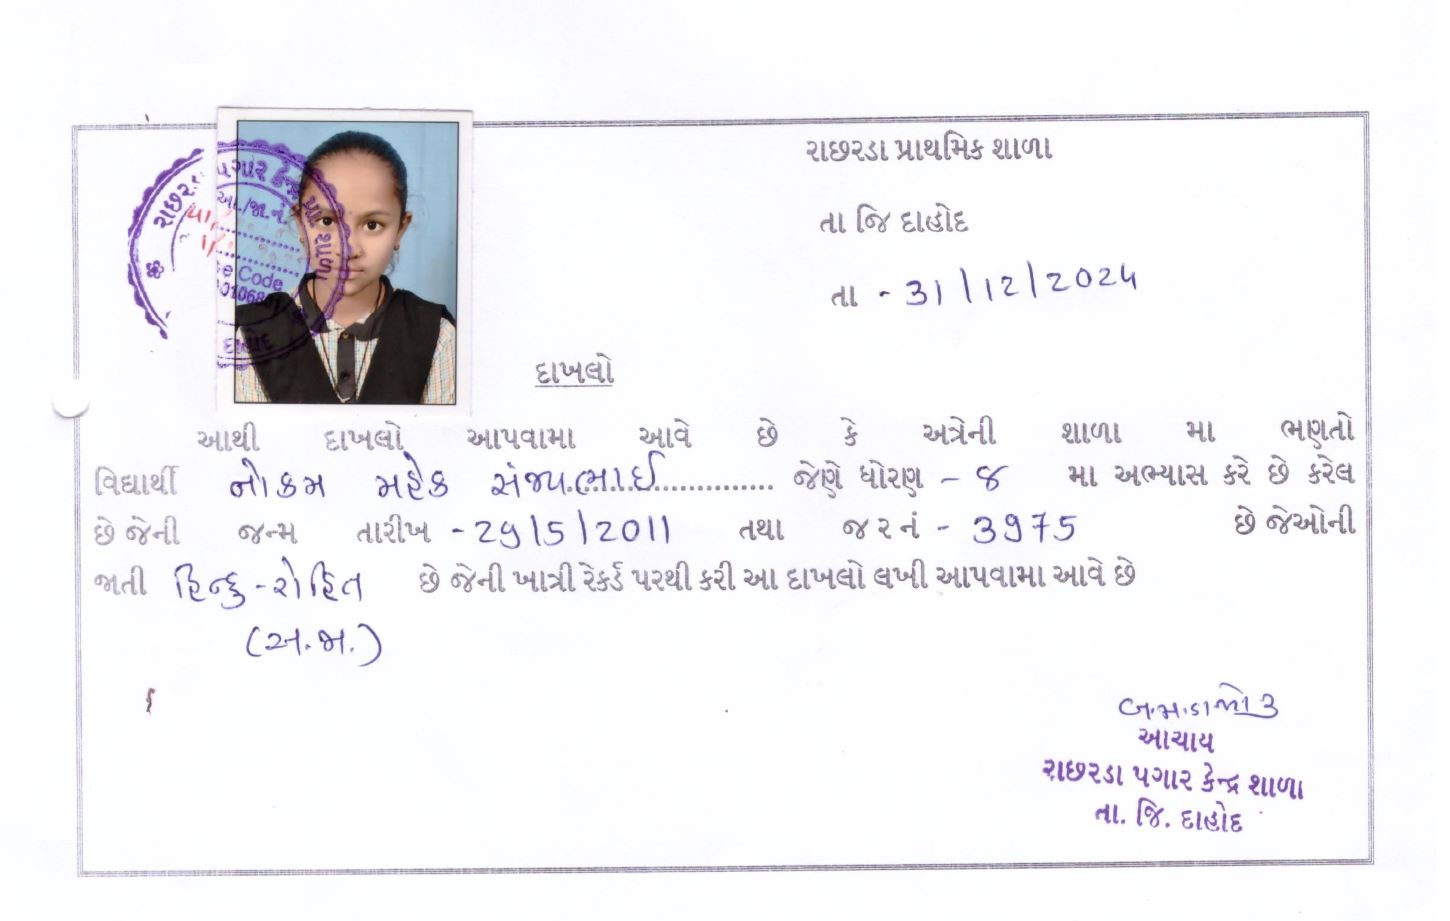 રાછરડા પ્રાથમિક શાળા
તા જિ દાહોદ
તા - 31/12/2024
દાખલો
આથી દાખલો આપવામા આવે છે કે અત્રેની શાળા મા ભણતો
વિદ્યાર્થી નોકમ મહેક સંજયભાઈ............... જેણે ધોરણ - ૪ મા અભ્યાસ કરે છે કરેલ
છે જેની જન્મ તારીખ - 29/5/2011 તથા જ ર નં - 3975 છે જેઓની
જાતી હિન્દુ - રોહિત છે જેની ખાત્રી રેકર્ડ પરથી કરી આ દાખલો લખી આપવામા આવે છે
(અ.જા.)
આચાય
રાછરડા પગાર કેન્દ્ર શાળા
તા. જિ. દાહોદ
પગાર કેન્દ્ર
આ./જા.નં.
Code
દાહોદ